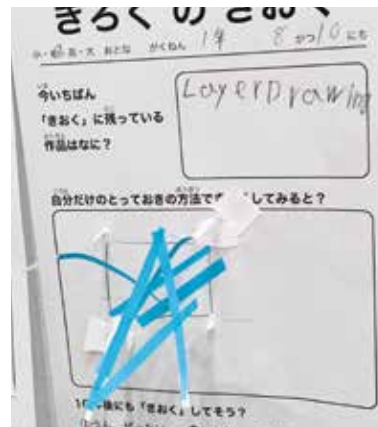 きろく の きおく
小・中・高・大 おとな がくねん 1年 8 がつ10にち
今いちばん
「きおく」に残っている
作品はなに?
LayerDrawing
自分だけのとっておきの方法で してみると?
後にも「きおく」してそう?